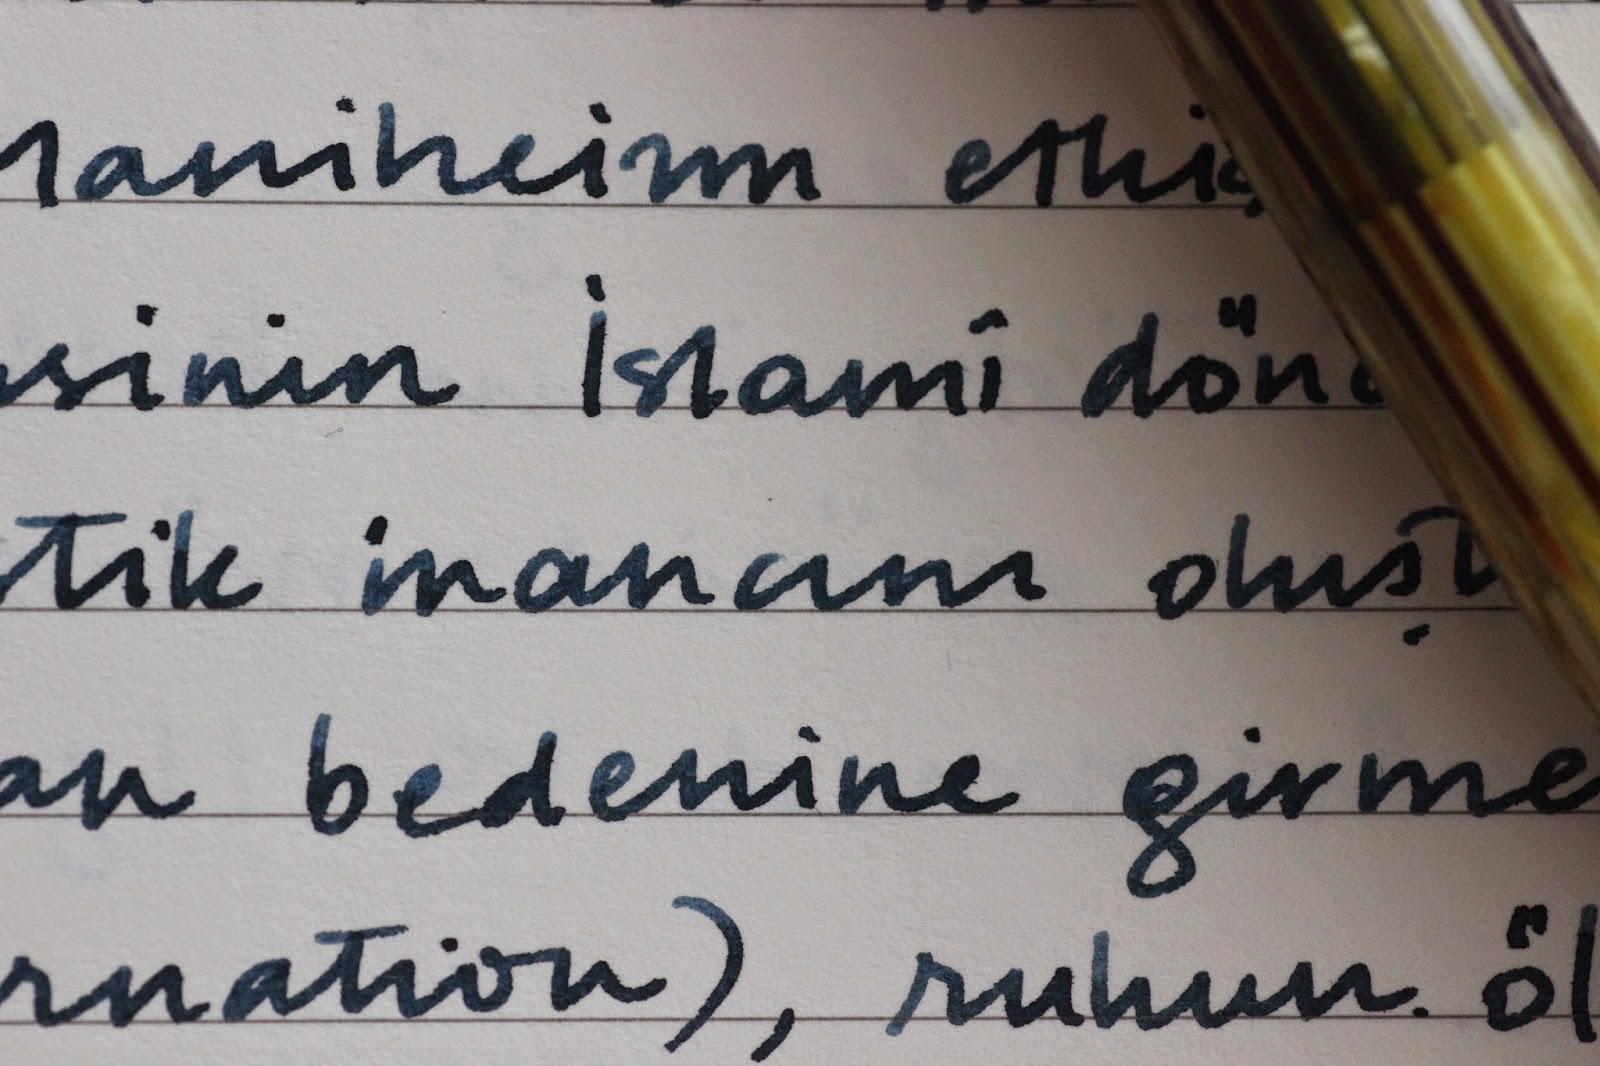 Maniheizm etkis
sinin İslamî döne
tik inancını oluşt
an bedenine girme
rnation), ruhun öl